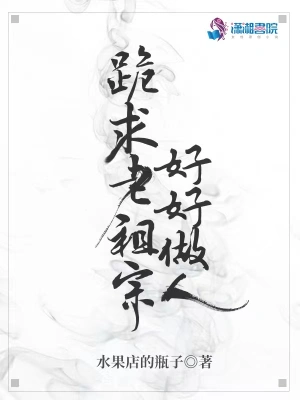 瀟湘書院
跪求老祖宗
好好做人
水果店的瓶子◎著